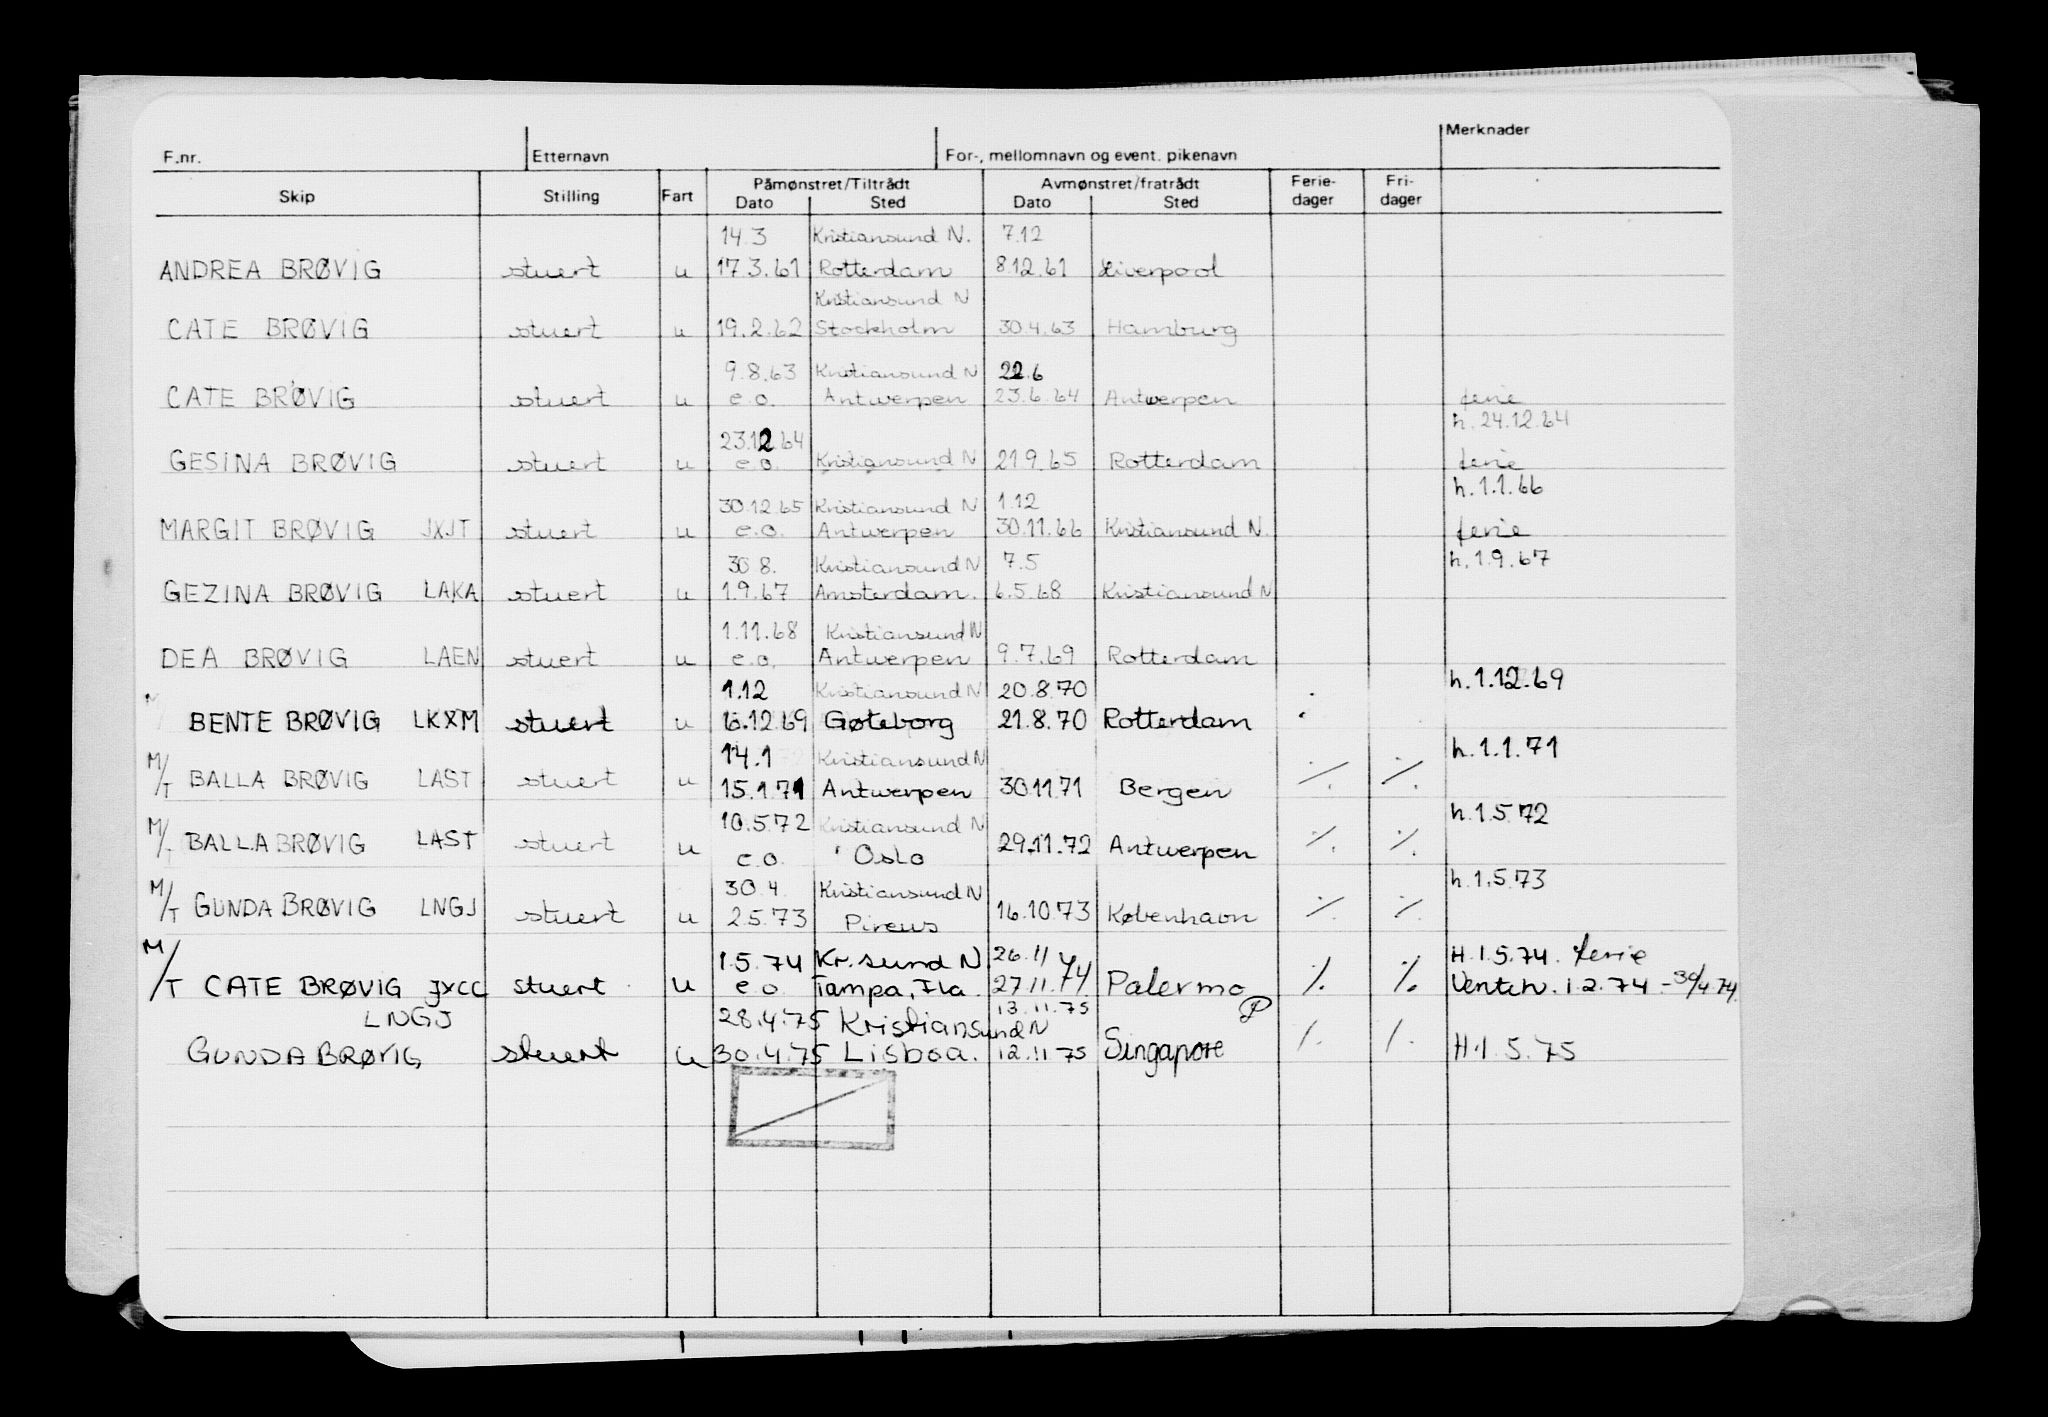 F.nr. Etternavn For-, mellomnavn og event. pikenavn Merknader
Skip Stilling Fart Påmønstret/Tiltrådt Avmønstret/fratrådt Ferie- Fri-
Dato Sted Dato Sted dager dager
14.3 Kristiansund N. 7.12
ANDREA BRØVIG stuert u 17.3.61 Rotterdam 8.12.61 Liverpool
Kristiansund N
CATE BRØVIG stuert u 19.2.62 Stockholm 30.4.63 Hamburg
9.8.63 Kristiansund N 22.6
CATE BRØVIG stuert u e.o. Antwerpen 23.6.64 Antwerpen ferie
h. 24.12.64
23.12.64
GESINA BRØVIG stuert u e.o. Kristiansund N 21.9.65 Rotterdam ferie
h. 1.1.66
30.12.65 Kristiansund N 1.12
MARGIT BRØVIG JXJT stuert u e.o. Antwerpen 30.11.66 Kristiansund N. ferie
30.8. Kristiansund N 7.5 h. 1.9.67
GEZINA BRØVIG LAKA stuert u 1.9.67 Amsterdam. 6.5.68 Kristiansund N
1.11.68 Kristiansund N
DEA BRØVIG LAEN stuert u e.o. Antwerpen 9.7.69 Rotterdam
1.12 Kristiansund N 20.8.70 h. 1.12.69
M/ BENTE BRØVIG LKXM stuert u 6.12.69 Gøteborg 21.8.70 Rotterdam
14.1 Kristiansund N h. 1.1.71
M/T BALLA BRØVIG LAST stuert u 15.1.71 Antwerpen 30.11.71 Bergen ./. ./.
10.5.72 Kristiansund N h. 1.5.72
M/T BALLA BRØVIG LAST stuert u e.o. Oslo 29.11.72 Antwerpen ./. ./.
30.4. Kristiansund N h. 1.5.73
M/T GUNDA BRØVIG LNGJ stuert u 2.5.73 Pireus 16.10.73 København ./. ./.
1.5.74 Kr.sund N 26.11 H.1.5.74. ferie
M/T CATE BRØVIG JXCC stuert u e.o. Tampa, Fla. 27.11.74 Palermo ./. ./. Ventetv. 1.2.74 - 30/4.74.
LNGJ 28.4.75 Kristiansund N 13.11.75
GUNDA BRØVIG, stuert u 30.4.75 Lisboa. 12.11.75 Singapore /. /. H.1.5.75